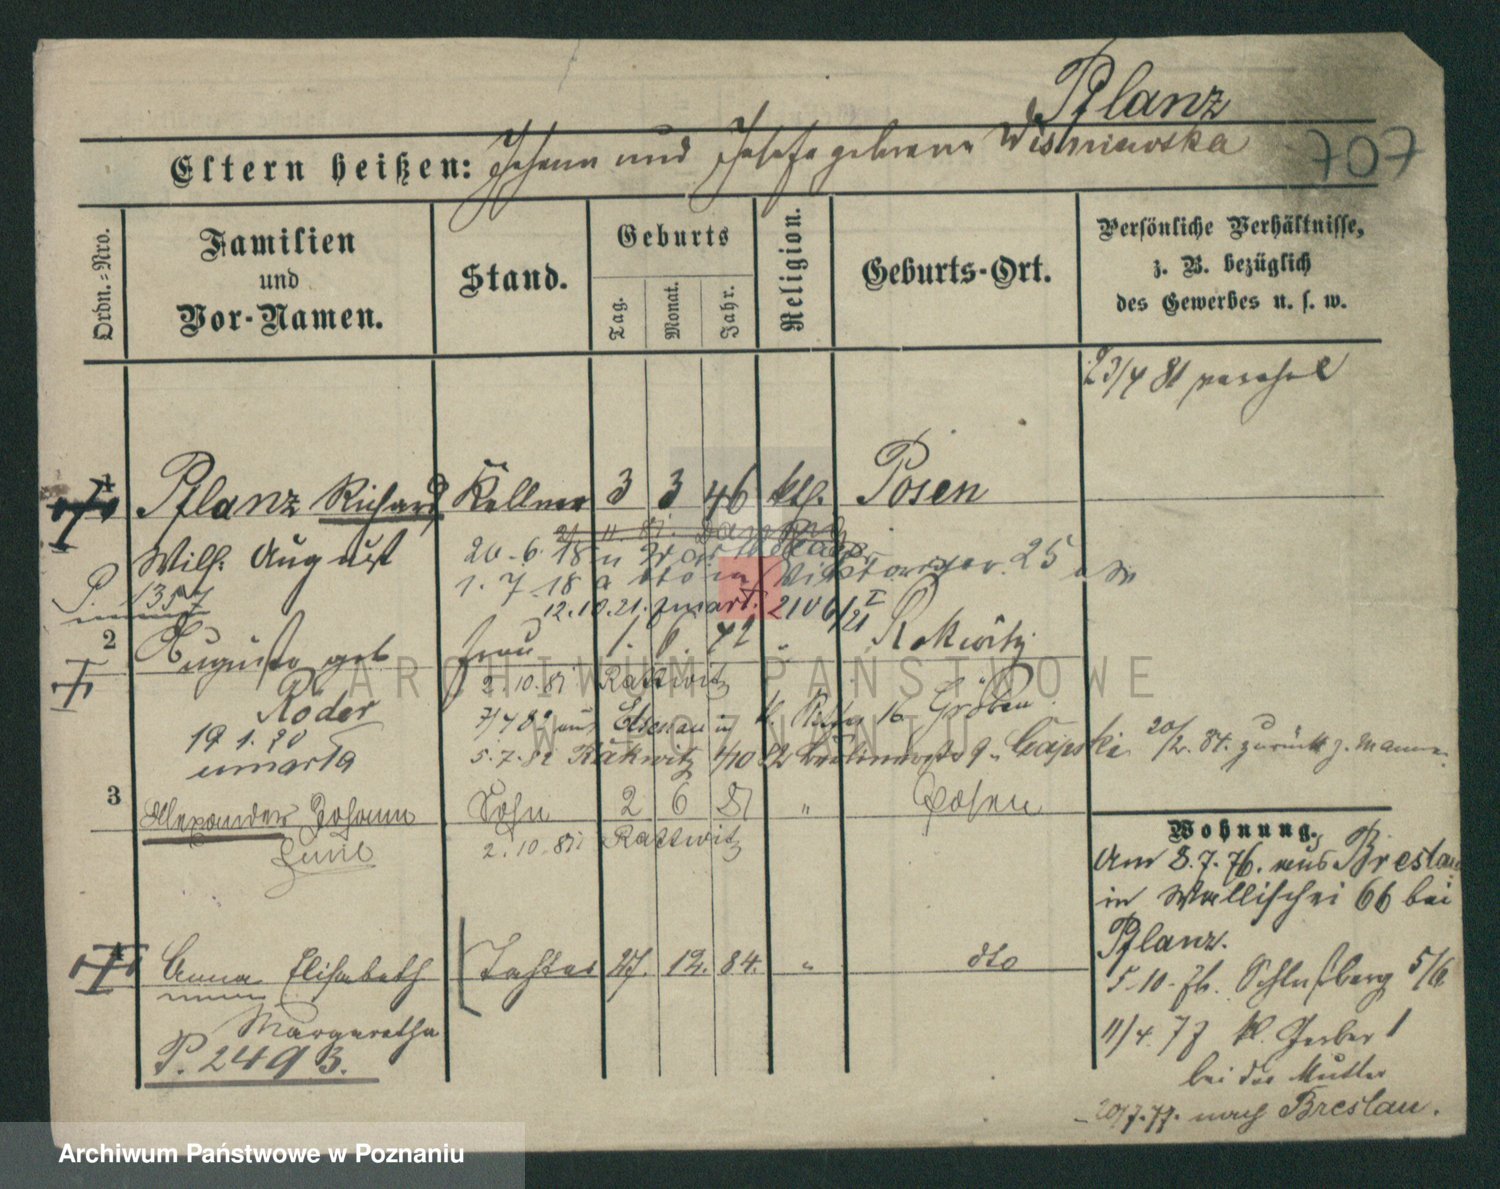 Pflanz
Eltern heißen: Johann und Josefa geborene Wisniewska
707
Ordn.-Nro.
Familien
und
Vor-Namen.
Stand.
Geburts
Tag.
Monat.
Jahr.
Religion.
Geburts-Ort.
Persönliche Verhältnisse,
z. B. bezüglich
des Gewerbes u. s. w.
23/4 81
Pflanz Richard Kellner 3 3 46 kth. Posen
Wilh. August
20-6. 18
1. 7-18 25
P. 1357
12.10.21. 2106/21
2 Auguste geb Frau 1. 6. 72 " Rakwitz
Roder
2.10.81 Rakwitz
19 1. 20
7/4 82 aus 16 Gröben
5.7.82 Rakwitz 1/10 82 9 20/2. 84. zurück z. Manne
3
Alexander Johann Sohn 2 6 81 " Posen
Emil
2.10.81 Rakwitz
Wohnung.
Am 3.7.76. aus Breslau
in Wallischei 66 bei
Pflanz.
4 Anna Elisabeth Tochter 27. 12. 84. " dto
Margaretha
P. 2493.
5-10-76. Schloßberg 5/6
11/4. 77 kl. Gerber 1
bei der Mutter
20/7.77. nach Breslau.
ARCHIWUM PAŃSTWOWE
W POZNANIU
Archiwum Państwowe w Poznaniu